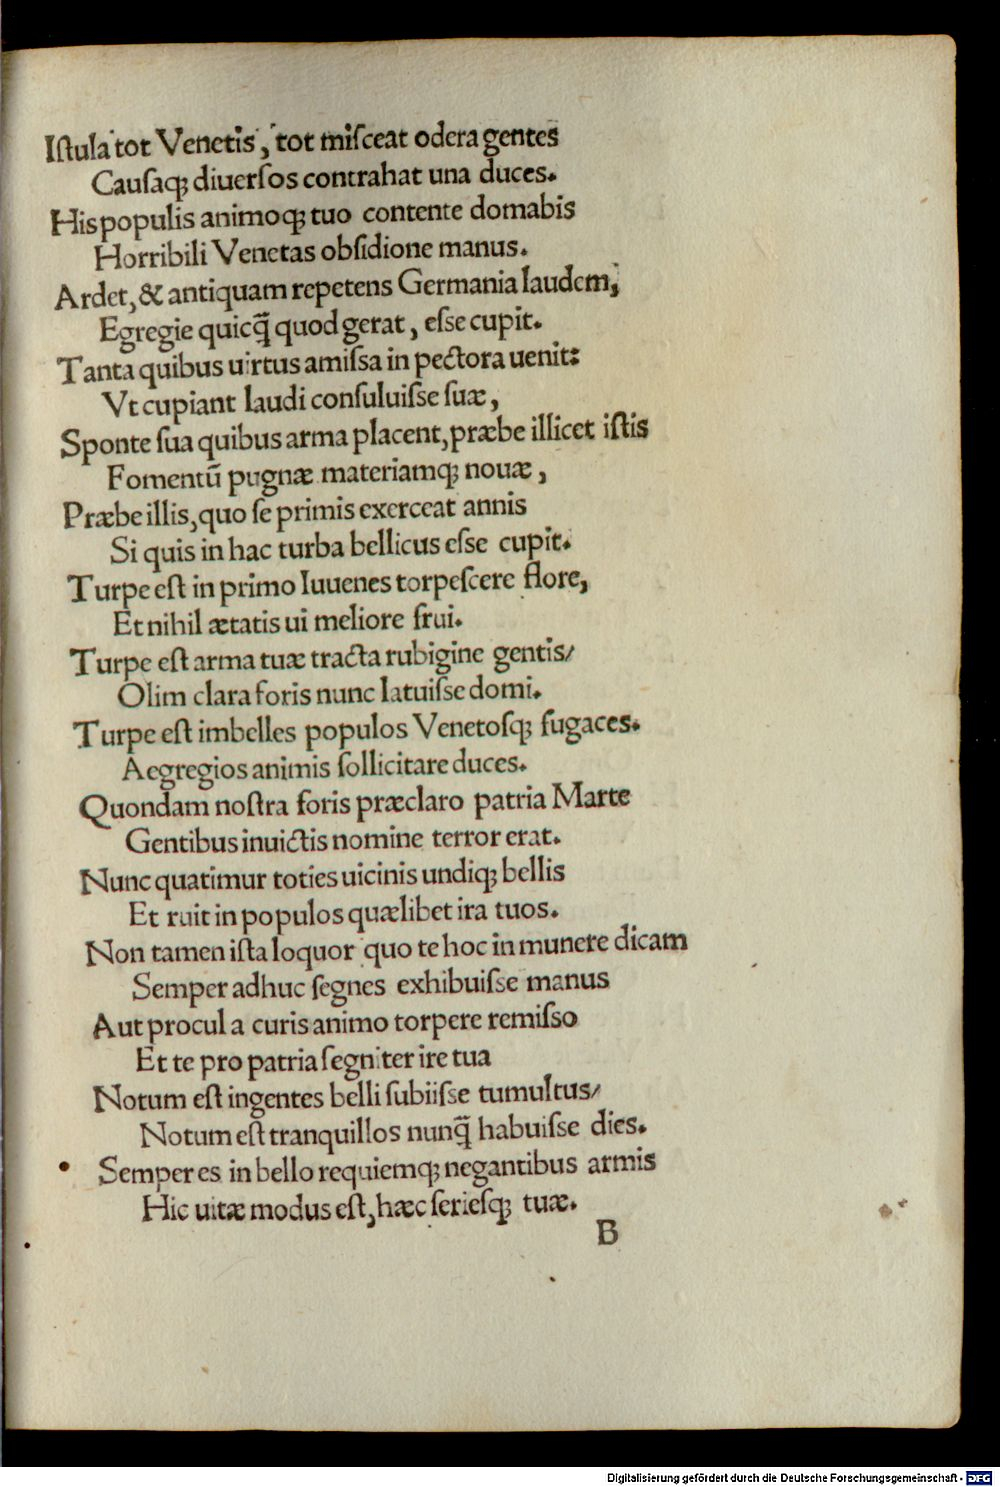 Iſtula tot Venetis, tot miſceat odera gentes
Cauſaq; diuerſos contrahat una duces.
His populis animoq; tuo contente domabis
Horribili Venetas obſidione manus.
Ardet, & antiquam repetens Germania laudem,
Egregie quicq̃ quod gerat, eſſe cupit.
Tanta quibus uirtus amiſſa in pectora uenit:
Vt cupiant laudi conſuluiſſe ſuæ,
Sponte ſua quibus arma placent, præbe illicet iſtis
Fomentũ pugnæ materiamq; nouæ,
Præbe illis, quo ſe primis exerceat annis
Si quis in hac turba bellicus eſſe cupit.
Turpe eſt in primo Iuuenes torpeſcere flore,
Et nihil ætatis ui meliore frui.
Turpe eſt arma tuæ tracta rubigine gentis/
Olim clara foris nunc latuiſſe domi.
Turpe eſt imbelles populos Venetoſq; fugaces.
Aegregios animis ſollicitare duces.
Quondam noſtra foris præclaro patria Marte
Gentibus inuictis nomine terror erat.
Nunc quatimur toties uicinis undiq; bellis
Et ruit in populos quælibet ira tuos.
Non tamen iſta loquor quo te hoc in munere dicam
Semper adhuc ſegnes exhibuiſse manus
Aut procul a curis animo torpere remiſſo
Et te pro patria ſegniter ire tua
Notum eſt ingentes belli ſubiiſse tumultus/
Notum eſt tranquillos nunq̃ habuiſſe dies.
Semper es in bello requiemq; negantibus armis
Hic uitæ modus eſt, hæc ſerieſq; tuæ.
B
Digitalisierung gefördert durch die Deutsche Forschungsgemeinschaft - DFG